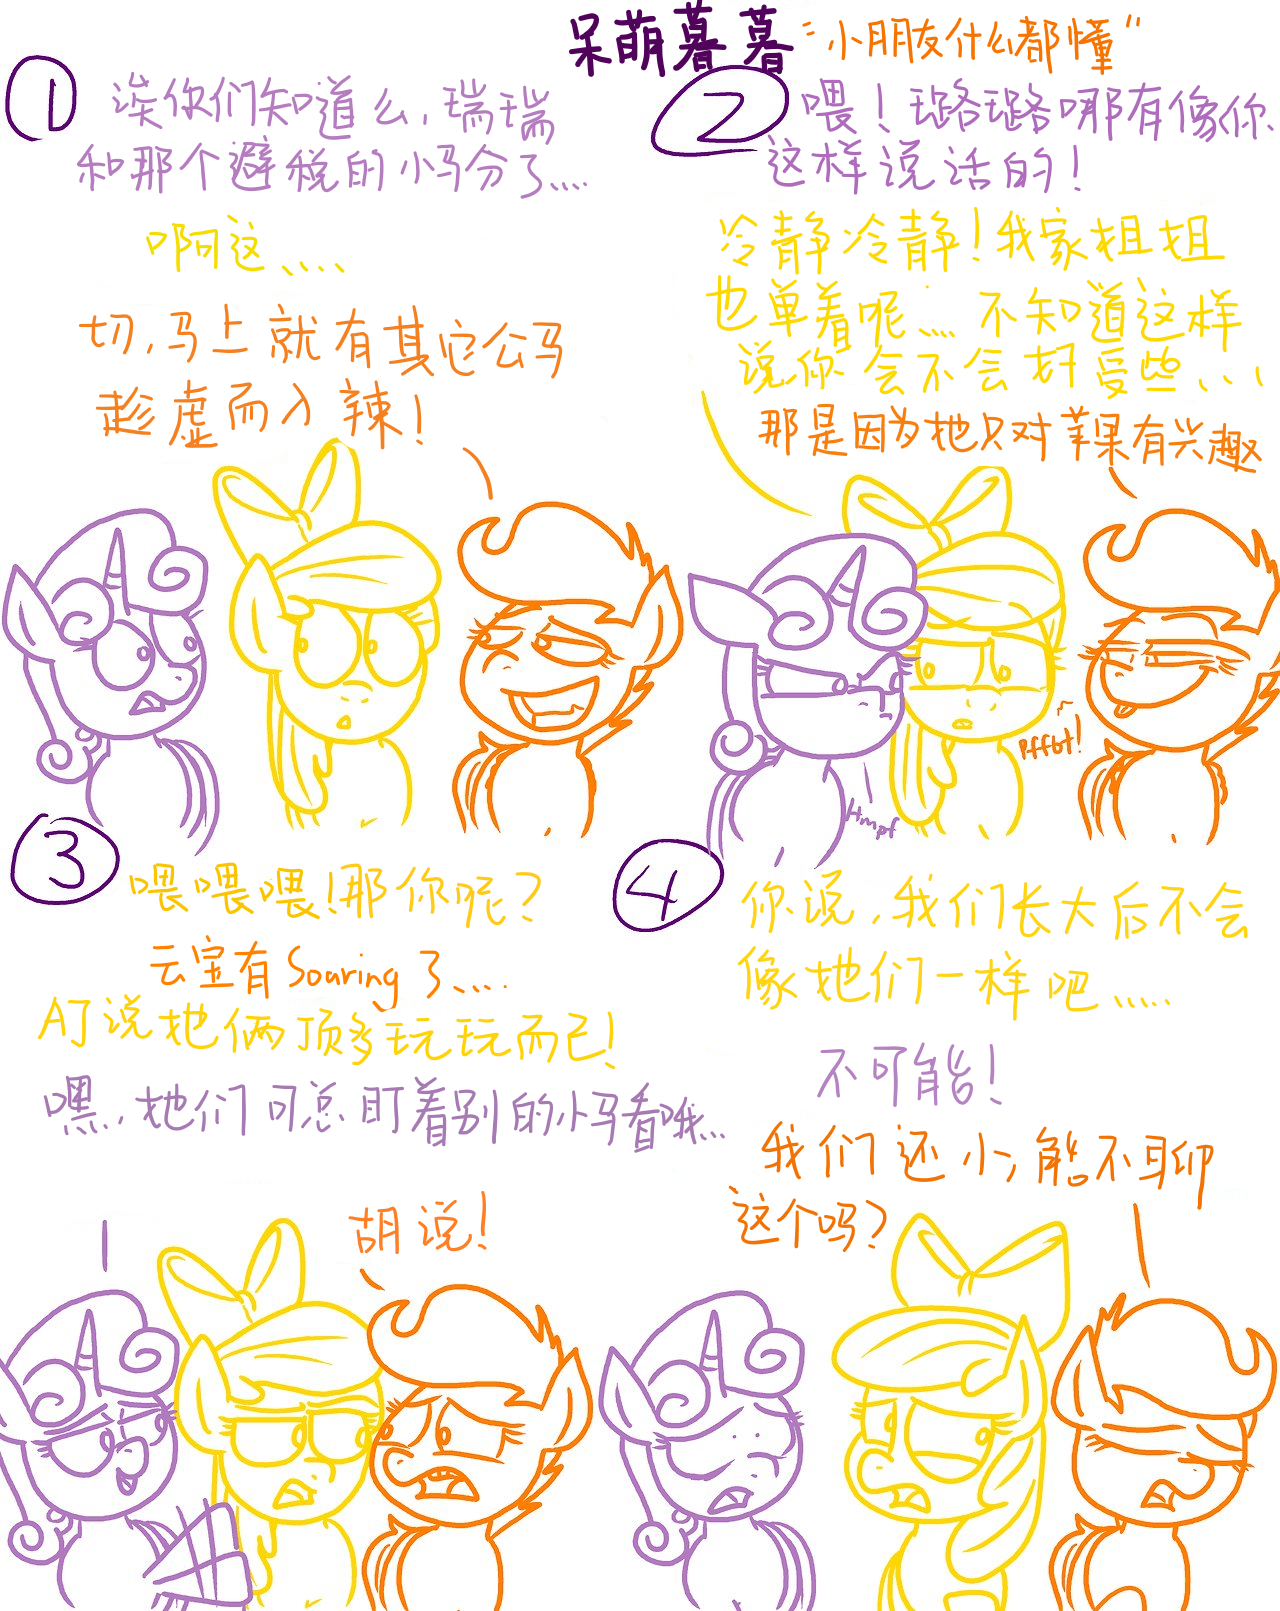 呆萌暮暮 “小朋友什么都懂”
1
诶你们知道么，瑞瑞
和那个避税的小马分了....
啊这....
切，马上就有其它公马
趁虚而入辣！
2
喂！璐璐哪有像你
这样说话的！
冷静冷静！我家姐姐
也单着呢....不知道这样
说你会不会好受些...
那是因为她只对苹果有兴趣
Pffbt!
Hmpf
3
喂喂喂！那你呢？
云宝有Soaring了....
AJ说她俩顶多玩玩而已！
嘿，她们可总盯着别的小马看哦...
胡说！
4
你说，我们长大后不会
像她们一样吧.....
不可能！
我们还小，能不聊
这个吗？